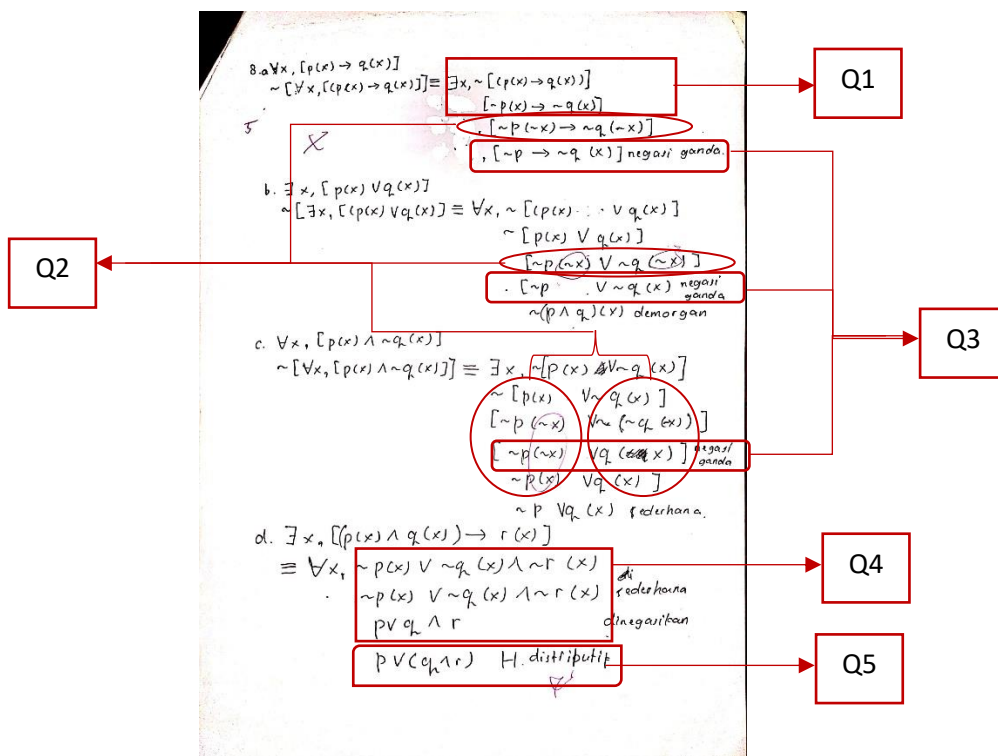 8.a ∀x, [p(x) → q(x)]
~[∀x, [(p(x) → q(x)]] ≡ ∃x, ~[(p(x) → q(x))]
[~p(x) → ~q(x)]
5
X
, [~p(~x) → ~q(~x)]
, [~p → ~q (x)] negasi ganda.
b. ∃x, [p(x) ∨ q(x)]
~[∃x, [(p(x) ∨ q(x)] ≡ ∀x, ~[(p(x) ∨ q(x)]
~[p(x) ∨ q(x)]
[~p(~x) ∨ ~q(~x)]
. [~p ∨ ~q(x) negasi ganda
~(p ∧ q)(x) demorgan
c. ∀x, [p(x) ∧ ~q(x)]
~[∀x, [p(x) ∧ ~q(x)]] ≡ ∃x, ~[p(x) ∨ ~q(x)]
~[p(x) ∨ ~q(x)]
[~p(~x) ∨ ~(~q(x))]
[~p(~x) ∨ q(x)] negasi ganda
~p(x) ∨ q(x)]
~p ∨ q(x) sederhana.
d. ∃x, [(p(x) ∧ q(x)) → r(x)]
≡ ∀x, ~p(x) ∨ ~q(x) ∧ ~r(x)
~p(x) ∨ ~q(x) ∧ ~r(x) di sederhana
p ∨ q ∧ r dinegasikan
p ∨ (q ∧ r) H. distributif
Q1
Q2
Q3
Q4
Q5